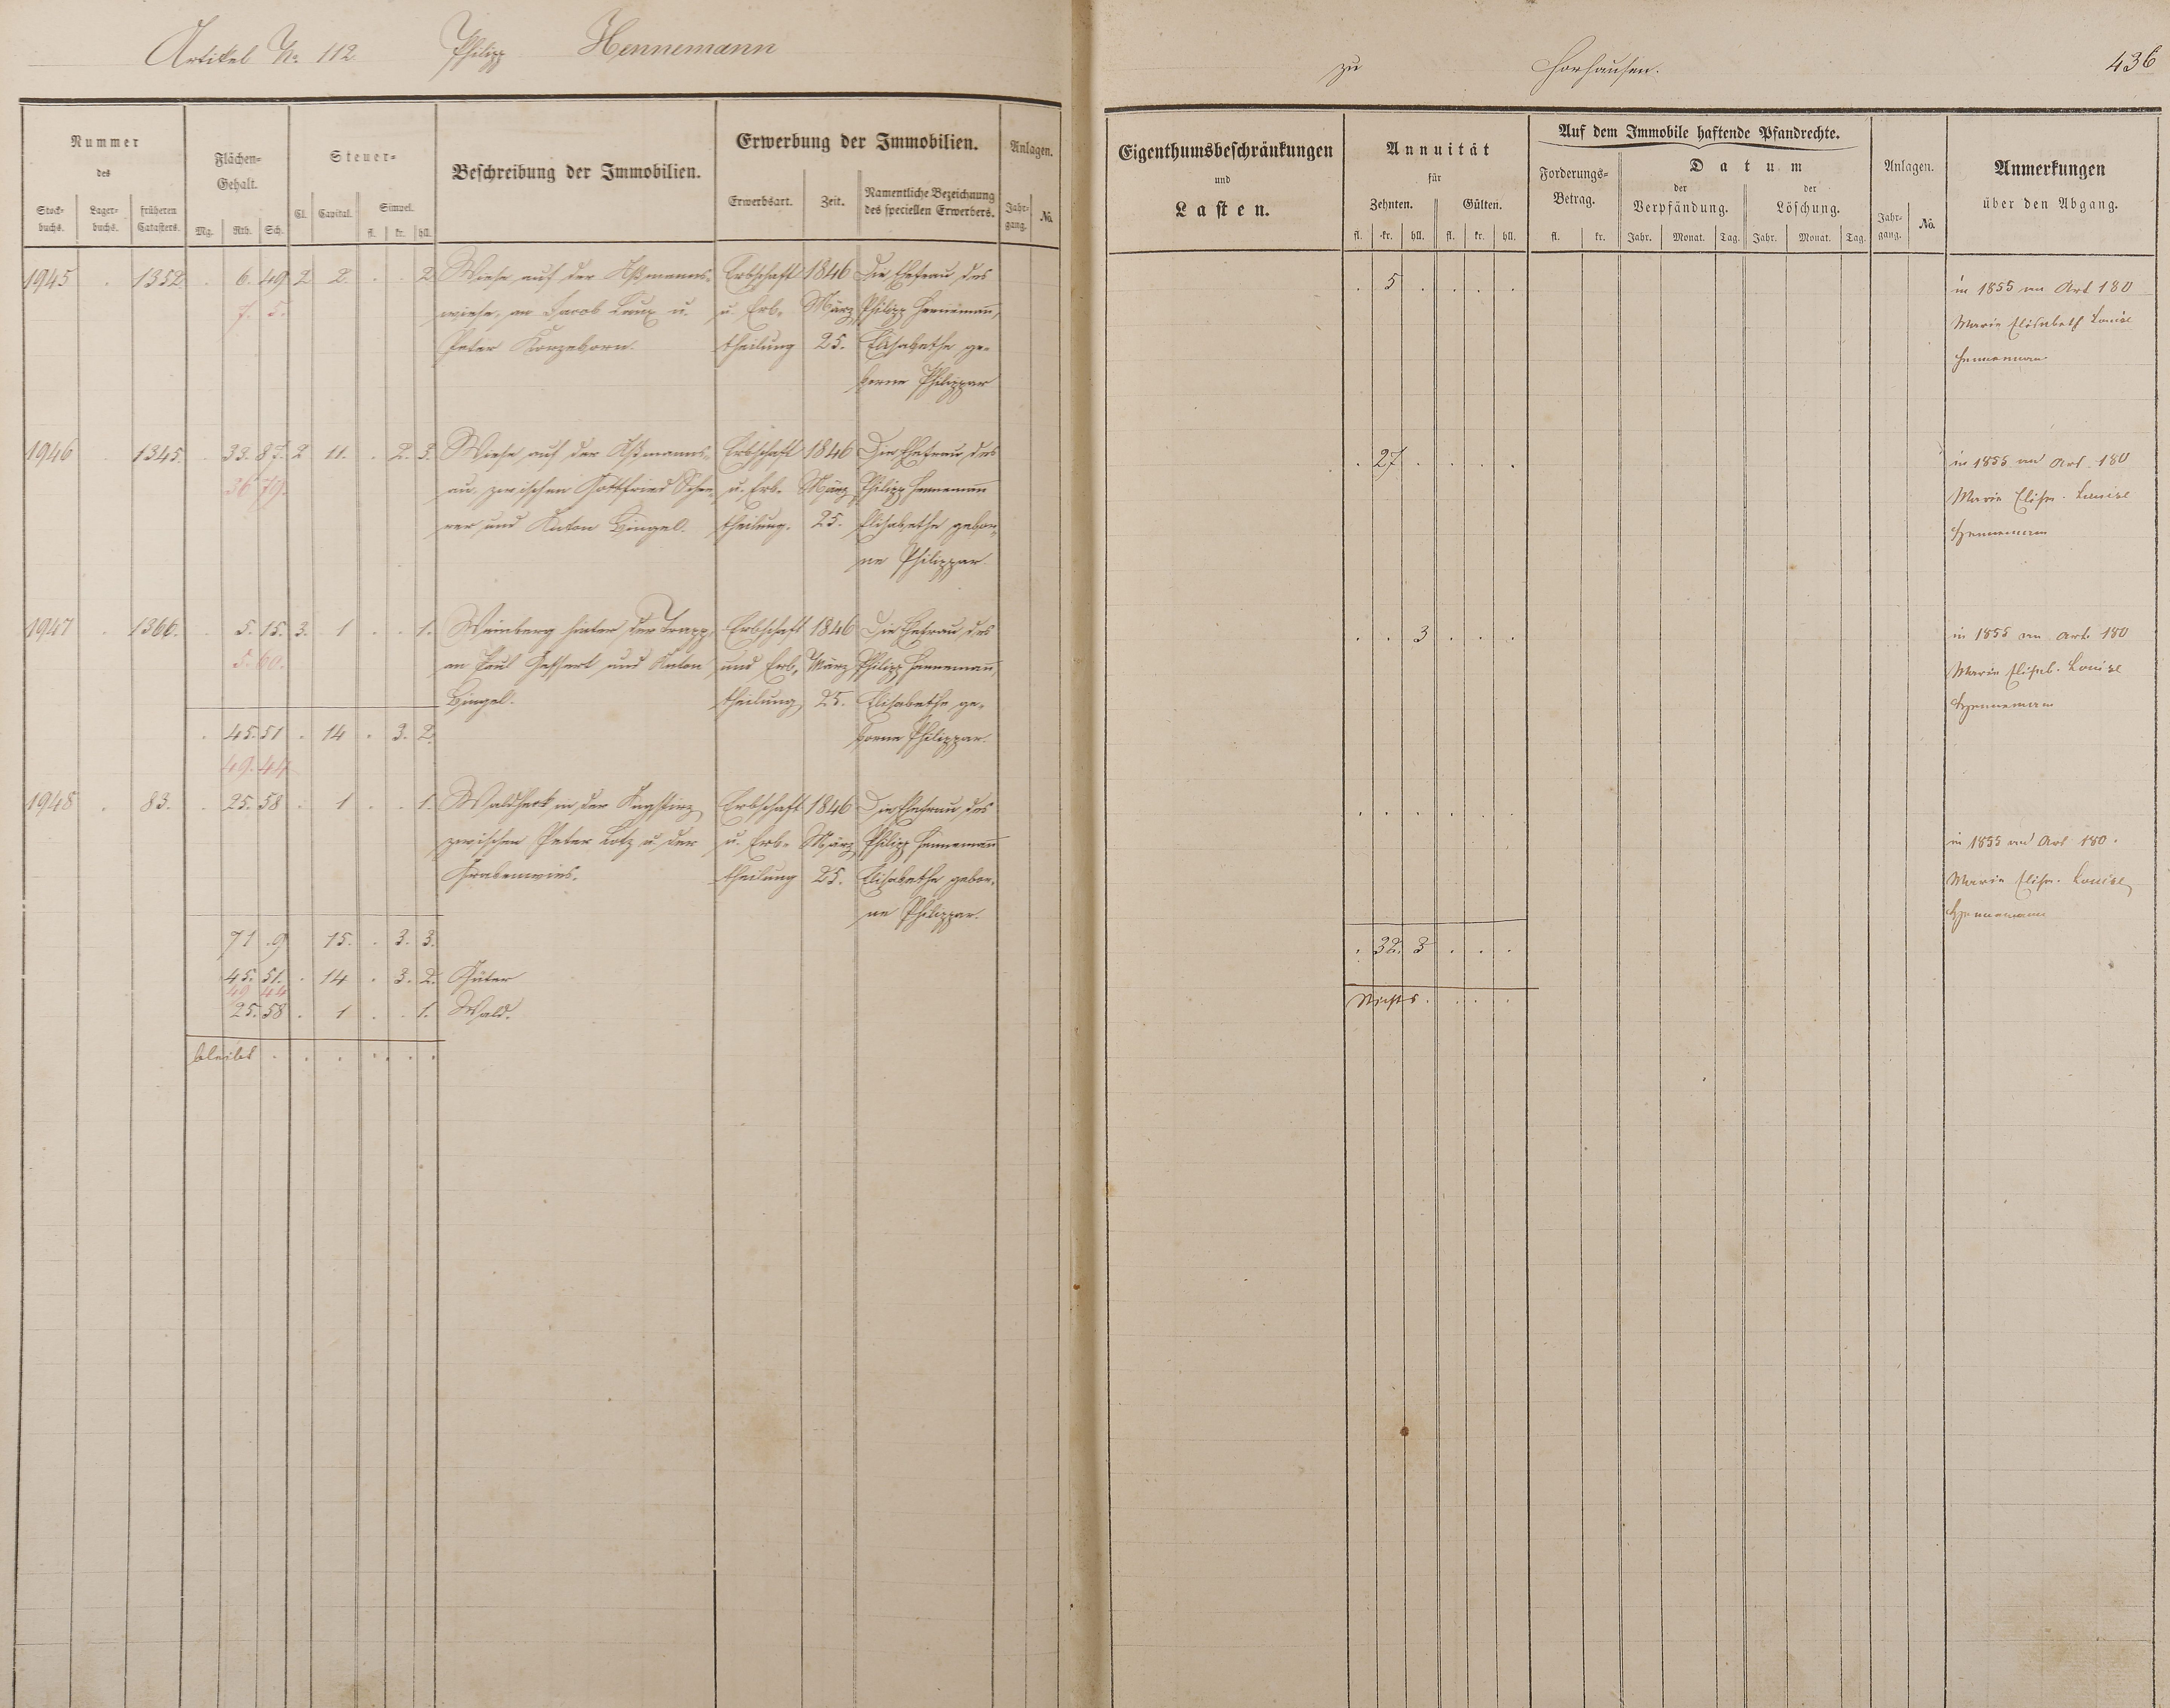 Artikel No. 112 Philipp Hennemann
zu Horhausen. 436
Nummer des
Stock-buchs. Lager-buchs. früheren Catasters.
Flächen-Gehalt.
Mg. Rth. Sch.
Steuer-
Cl. Capital. Simpel. fl. kr. hll.
Beschreibung der Immobilien.
Erwerbung der Immobilien.
Erwerbsart. Zeit. Namentliche Bezeichnung des speciellen Erwerbers.
Anlagen. Jahr-gang. No.
Eigenthumsbeschränkungen und Lasten.
Annuität für
Zehnten. Gülten.
fl. kr. hll. fl. kr. hll.
Auf dem Immobile haftende Pfandrechte.
Forderungs-Betrag. fl. kr.
Datum
der Verpfändung. der Löschung.
Jahr. Monat. Tag. Jahr. Monat. Tag.
Anlagen. Jahr-gang. No.
Anmerkungen über den Abgang.
1945 . 1352 . 6. 49 2 2. . . 2 Wiese auf der Aßmanns- Erbschaft 1846 Die Ehefrau des . 5 . . . . in 1855 an Art 180
7. 5. wiese, an Jacob Laux u. u. Erb- März Philipp Hennemann, Marie Elisabeth Louise
Peter Konzeborn. theilung 25. Elisabetha ge- Hennemann
borne Philippar
1946 . 1345. . 33. 87. 2 11. . 2. 3. Wiese auf der Aßmanns- Erbschaft 1846 Die Ehefrau des . 27 . . . . in 1855 an Art. 180
36 79. au, zwischen Gottfried u. Erb- März Philipp Hennemann Marie Elise. Louise
und Anton Bingel. theilung. 25. Elisabetha gebor- Hennemann
ne Philippar.
1947 . 1366. . 5. 15. 3. 1 . . 1. Weinberg hinter der Trapp, Erbschaft 1846 Die Ehefrau des . . 3 . . . in 1855 an Art. 180
5. 60. an Paul und Anton und Erb- März Philipp Hennemann, Marie Elisab. Louise
Bingel. theilung 25. Elisabetha ge- Hennemann
. 45. 51 . 14 . 3. 2. borne Philippar.
49. 44
1948 . 83. . 25. 58 . 1 . . 1. in der Erbschaft 1846 Die Ehefrau des . . . . . .
zwischen Peter Lotz u. der u. Erb- März Philipp Hennemann in 1855 an Art 180.
Grabenwies. theilung 25. Elisabetha gebor- Marie Elise. Louise
ne Philippar. Hennemann
71. 9 15. . 3. 3. . 32. 3 . . .
45. 51. . 14 . 3. 2. Güter
49 44
25. 58 . 1 . . 1. Wald. Nichts . . . .
bleibt . . . . . .